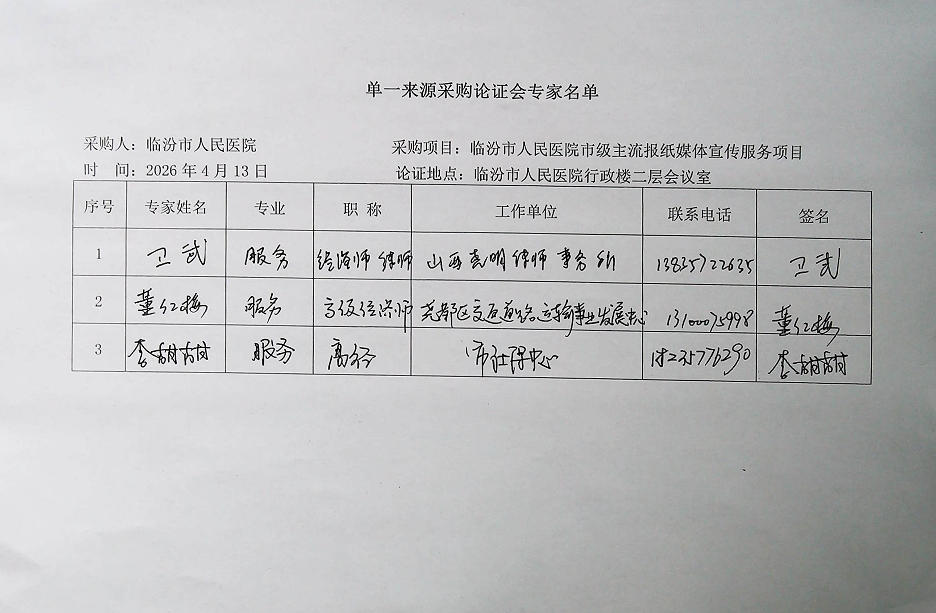 单一来源采购论证会专家名单
采购人：临汾市人民医院 采购项目：临汾市人民医院市级主流报纸媒体宣传服务项目
时 间：2026年4月13日 论证地点：临汾市人民医院行政楼二层会议室
序号 专家姓名 专业 职 称 工作单位 联系电话 签名
1 卫武 服务 经济师 律师 山西尧明律师事务所 13835722635 卫武
2 董红梅 服务 高级经济师 尧都区交通道路运输事业发展中心 13100075998 董红梅
3 李甜甜 服务 高经 市社保中心 李甜甜